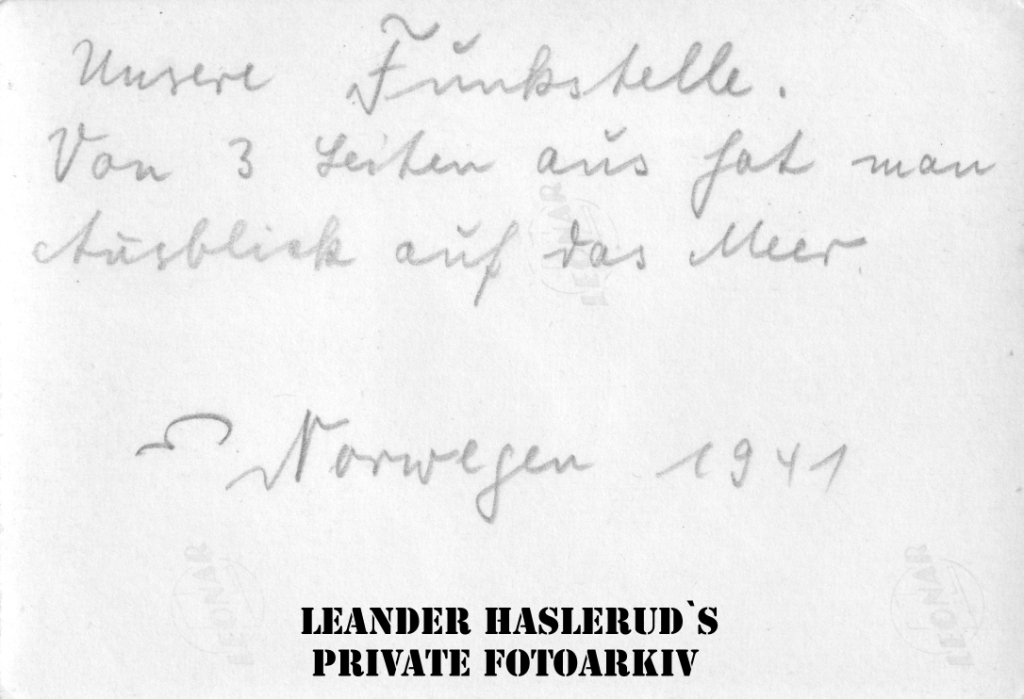 Unsere Funkstelle.
Von 3 Seiten aus hat man
Ausblick auf das Meer.
Norwegen 1941
LEONAR
LEONAR
LEONAR
LEANDER HASLERUD`S
PRIVATE FOTOARKIV